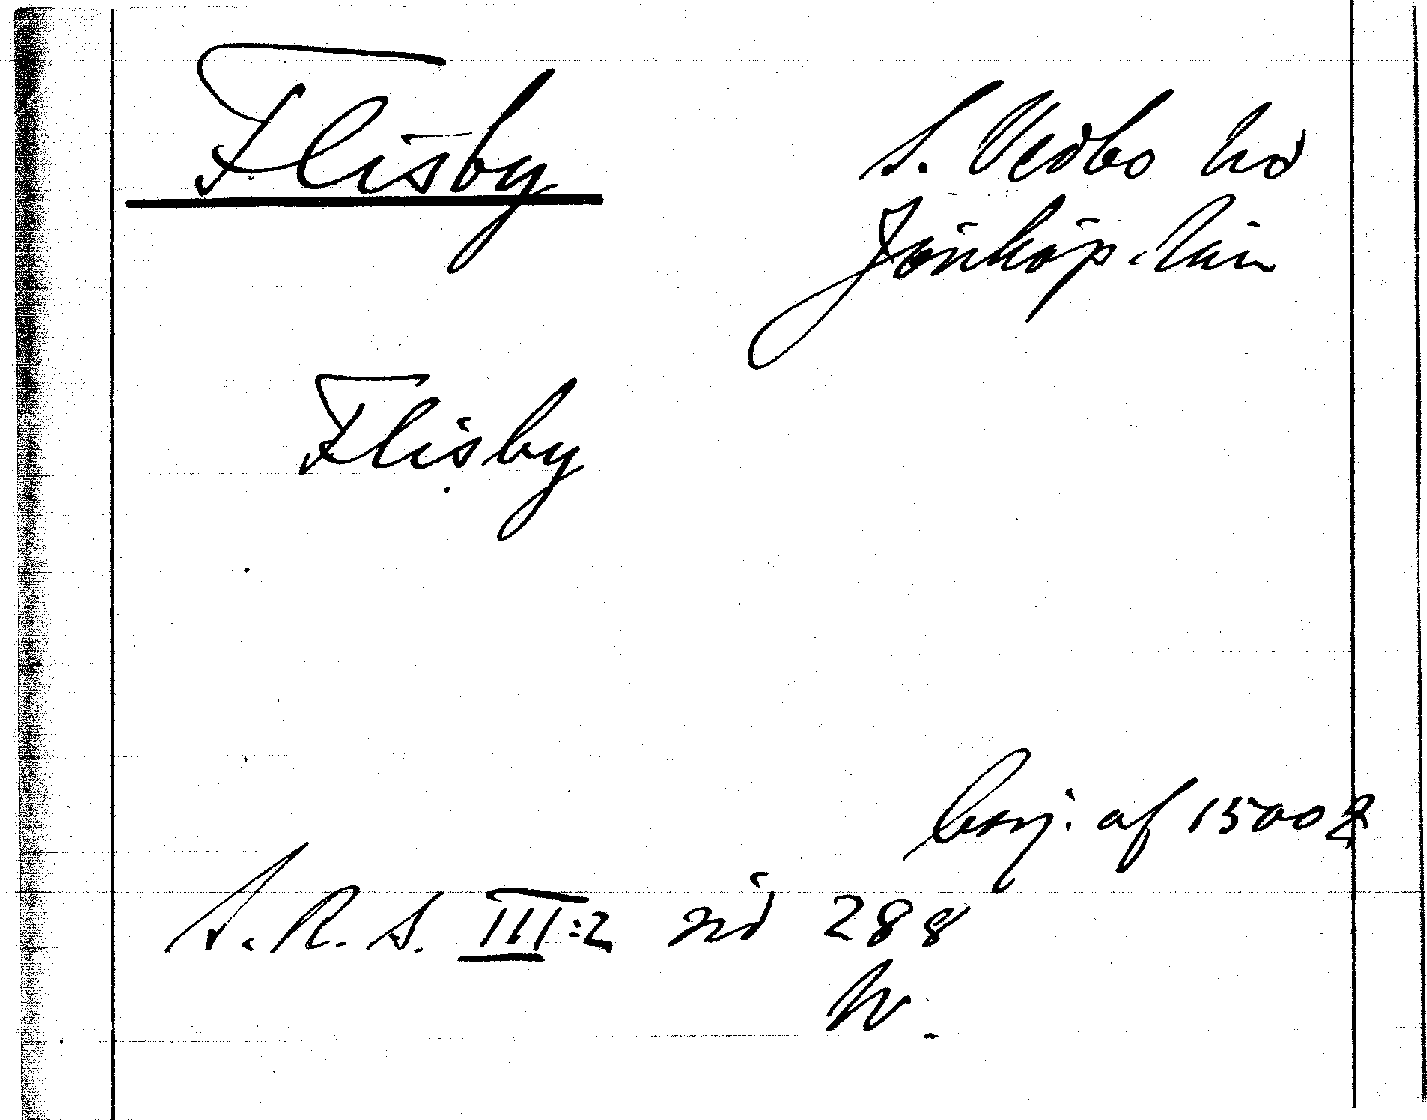 Flisby
S. Vedbo hd
Jönköp. län
Flisby
börj. af 1500 t
S. R. S. III:2 sid 288